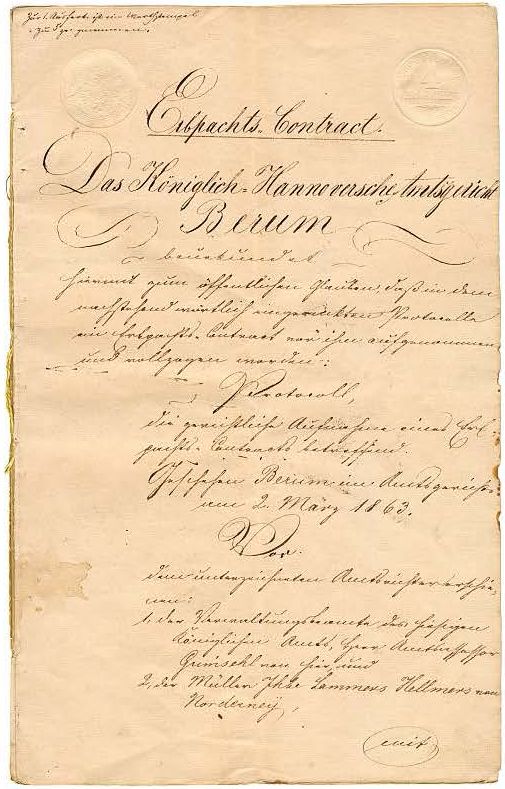 Zur 1. Ausfert. ist ein Werthstempel
zu genommen.
Erbpachts-Contract.
Das Königlich-Hannoversche Amtsgericht
Berum
beurkundet
hiermit zum öffentlichen Glauben, daß in dem
nachstehend wörtlich eingerückten Protocolle
ein Erbpachts-Contract vor ihm aufgenommen
und vollzogen worden:
Protocoll,
die gerichtliche Aufnahme eines Erb-
pachts-Contracts betreffend.
Geschehen Berum im Amtsgerichte
am 2. März 1863.
Vor
dem unterzeichneten Amtsrichter erschie-
nen:
1, der Verwaltungsbeamte des hiesigen
Königlichen Amts, Herr Amtsassessor
Grimsehl von hier, und
2, der Müller Lammers Hellmers von
Norderney,
mit